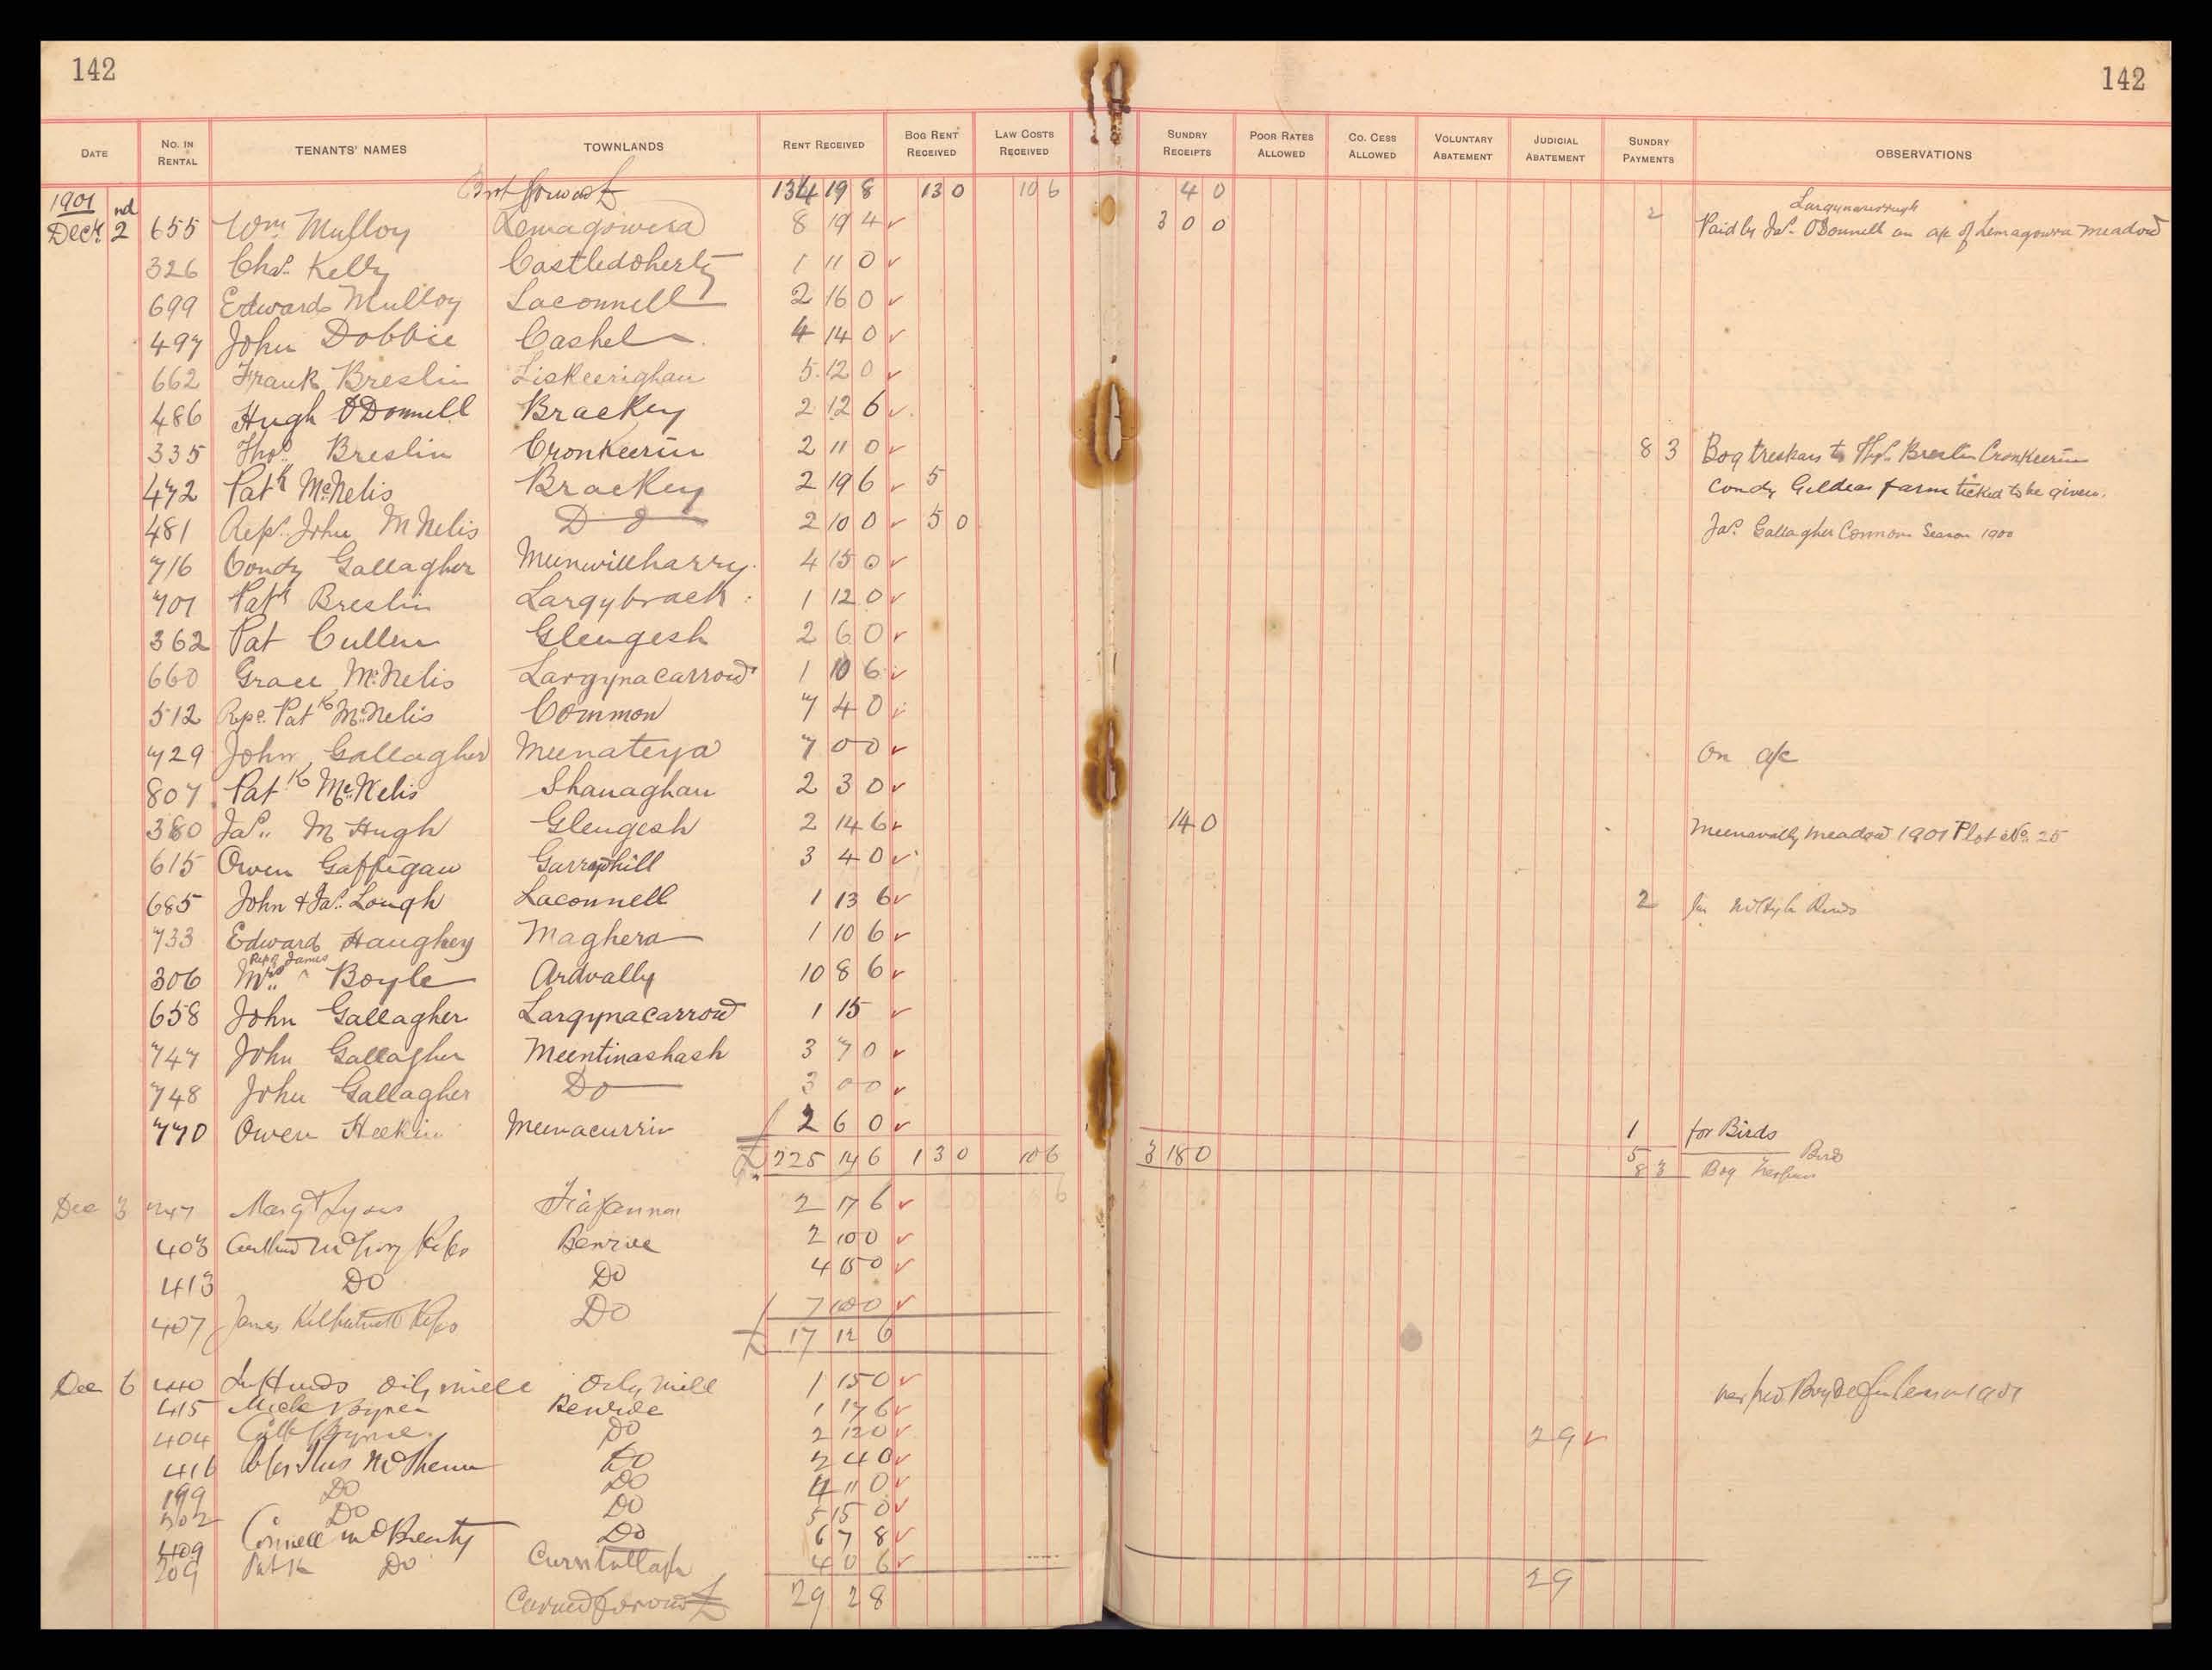 142 142
DATE NO. IN RENTAL TENANTS' NAMES TOWNLANDS RENT RECEIVED BOG RENT RECEIVED LAW COSTS RECEIVED SUNDRY RECEIPTS POOR RATES ALLOWED CO. CESS ALLOWED VOLUNTARY ABATEMENT JUDICIAL ABATEMENT SUNDRY PAYMENTS OBSERVATIONS
Brot forward £ 134 19 8 13 0 10 6 4 0
1901 Largynaborough
Decr. 2nd 655 Wm Mulloy Lemagowera 8 19 4 3 0 0 2 Paid by Jas. O'Donnell on a/c of Lemagowra meadow
326 Chas. Kelly Castledoherty 1 11 0
699 Edward Mulloy Laconnell 2 16 0
497 John Dobbie Cashel 4 14 0
662 Frank Breslin Liskeerighan 5 12 0
486 Hugh O'Donnell Brackey 2 12 6
335 Thos. Breslin Cronkeerin 2 11 0 8 3 Bog to Thos. Breslin Cronkeerin
472 Patk McNelis Brackey 2 19 6 5 Condy Gildea farm ticked to be given.
481 Reps. John McNelis Do 2 10 0 5 0 Jas. Gallagher Common Season 1900
716 Condy Gallagher Meenwillharry 4 15 0
701 Patk Breslin Largybrack 1 12 0
362 Pat Cullen Glengesh 2 6 0
660 Grace McNelis Largynacarrow 1 10 6
512 Reps. Patk McNelis Common 7 4 0
729 John Gallagher Meenateya 7 0 0 On a/c
807 Patk McNelis Shanaghan 2 3 0
380 Jas. McHugh Glengesh 2 14 6 14 0 Meenavally meadow 1901 Plot No. 25
615 Owen Gaffigan Garryhill 3 4 0
685 John & Jas. Lough Laconnell 1 13 6 2 for Birds
733 Edward Haughey Maghera 1 10 6
Reps James
306 Mrs. ^ Boyle Ardvally 10 8 6
658 John Gallagher Largynacarrow 1 15
747 John Gallagher Meentinashask 3 7 0
748 John Gallagher Do 3 0 0
770 Owen Heekin Meenacurrin 2 6 0 1 for Birds
£ 225 14 6 1 3 0 10 6 3 18 0 5 Birds
8 3 Bog
Dec 3 Margt Lyons 2 17 6
403 Reps Benroe 2 10 0
413 Do Do 4 15 0
407 James Reps Do 7 10 0
£ 17 12 6
Dec 6 440 Oily mill Oily mill 1 15 0
415 Mick Byrne Benroe 1 17 6
404 Byrne Do 2 12 0 2 9
416 Do 2 4 0
199 Do Do 4 11 0
Do Do 5 15 0
409 Connell Do 6 7 8
209 Patk Do 4 0 6
Carried forward £ 29 2 8 2 9